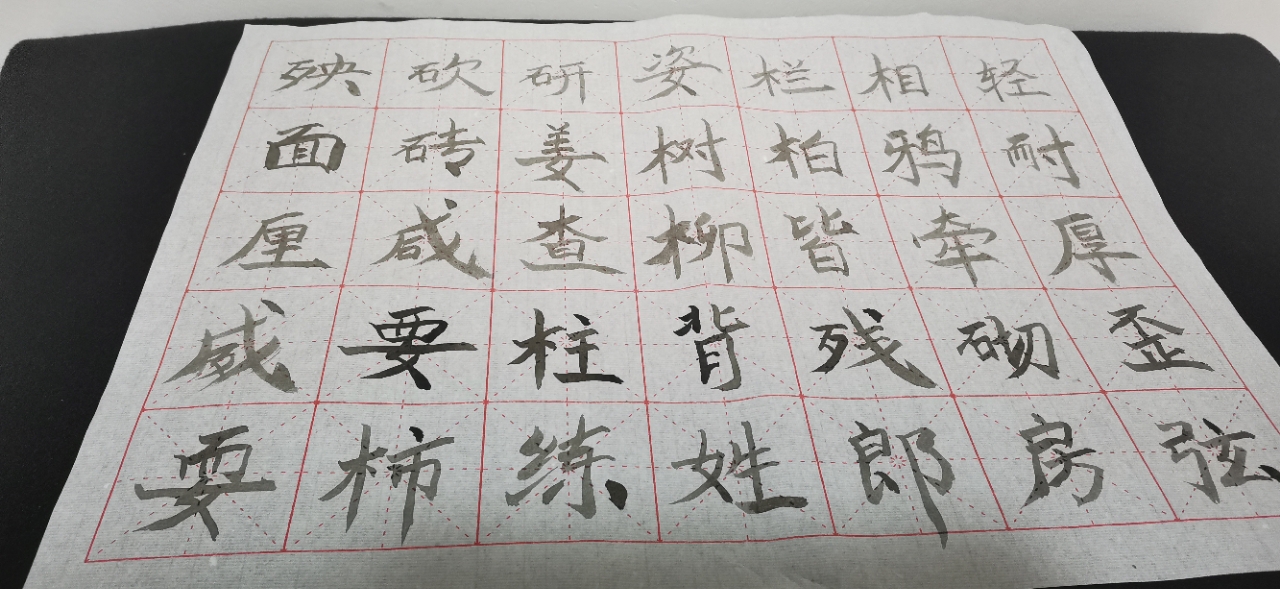 殃砍研姿栏相轻
面砖姜树柏鸦耐
厘咸查柳皆牵厚
威要柱背残砌歪
耍柿练姓郎房弦